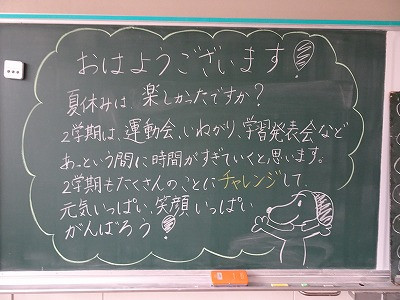 おはようございます!
夏休みは、楽しかったですか?
2学期は、運動会、いねかり、学習発表会など
あっという間に時間がすぎていくと思います。
2学期もたくさんのことにチャレンジして、
元気いっぱい、笑顔いっぱい
がんばろう!